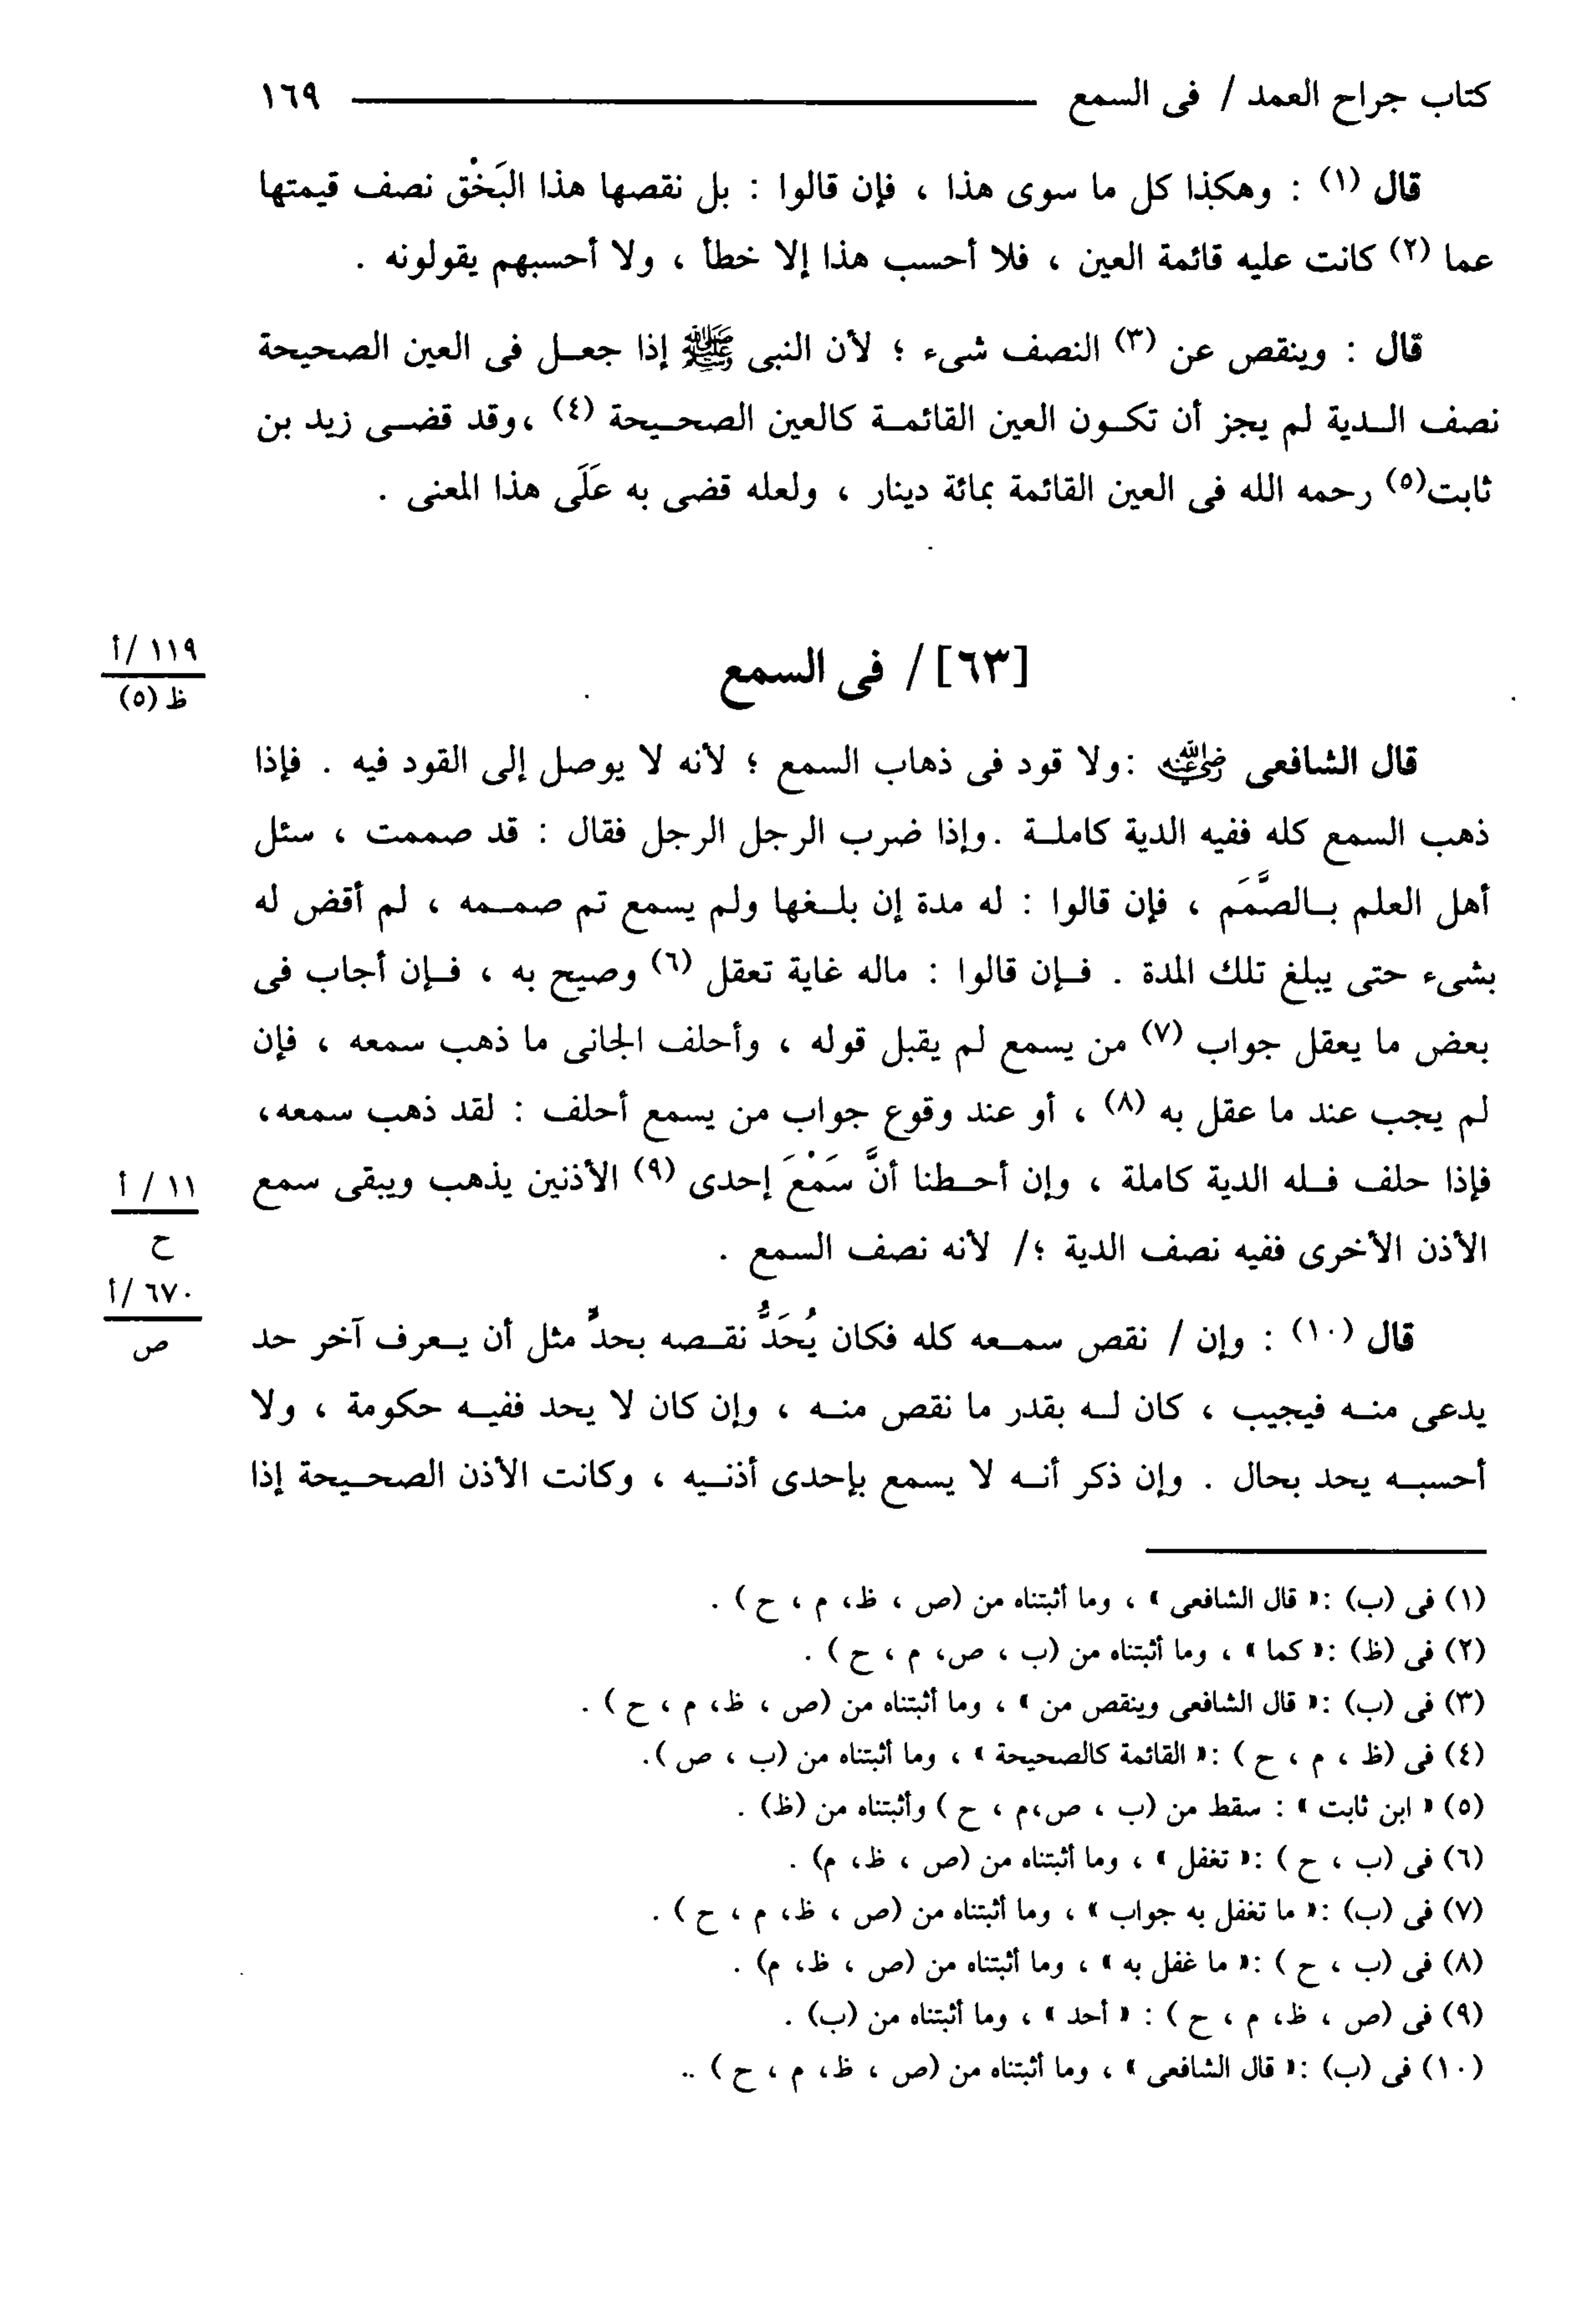 كتاب جراح العمد / فى السمع ١٦٩
قال (١) : وهكذا كل ما سوى هذا ، فإن قالوا : بل نقصها هذا البَخْق نصف قيمتها
عما (٢) كانت عليه قائمة العين ، فلا أحسب هذا إلا خطأ ، ولا أحسبهم يقولونه .
قال : وينقص عن (٣) النصف شىء ؛ لأن النبى ﷺ إذا جعل فى العين الصحيحة
نصف الدية لم يجز أن تكون العين القائمة كالعين الصحيحة (٤) ،وقد قضى زيد بن
ثابت(٥) رحمه الله فى العين القائمة بمائة دينار ، ولعله قضى به عَلَى هذا المعنى .
[٦٣] / فى السمع
١١٩ /أ
ظ (٥)
قال الشافعى رضي الله عنه :ولا قود فى ذهاب السمع ؛ لأنه لا يوصل إلى القود فيه . فإذا
ذهب السمع كله ففيه الدية كاملة .وإذا ضرب الرجل الرجل فقال : قد صممت ، سئل
أهل العلم بالصَّمَم ، فإن قالوا : له مدة إن بلغها ولم يسمع تم صممه ، لم أقض له
بشىء حتى يبلغ تلك المدة . فإن قالوا : ماله غاية تعقل (٦) وصيح به ، فإن أجاب فى
بعض ما يعقل جواب (٧) من يسمع لم يقبل قوله ، وأحلف الجانى ما ذهب سمعه ، فإن
لم يجب عند ما عقل به (٨) ، أو عند وقوع جواب من يسمع أحلف : لقد ذهب سمعه،
فإذا حلف فله الدية كاملة ، وإن أحطنا أنَّ سَمْعَ إحدى (٩) الأذنين يذهب ويبقى سمع
١١ / أ
ح
الأذن الأخرى ففيه نصف الدية ؛/ لأنه نصف السمع .
٦٧٠ /أ
ص
قال (١٠) : وإن / نقص سمعه كله فكان يُحَدُّ نقصه بحدٍّ مثل أن يعرف آخر حد
يدعى منه فيجيب ، كان له بقدر ما نقص منه ، وإن كان لا يحد ففيه حكومة ، ولا
أحسبه يحد بحال . وإن ذكر أنه لا يسمع بإحدى أذنيه ، وكانت الأذن الصحيحة إذا
(١) فى (ب) :« قال الشافعى » ، وما أثبتناه من (ص ، ظ، م ، ح ) .
(٢) فى (ظ) :« كما » ، وما أثبتناه من (ب ، ص، م ، ح ) .
(٣) فى (ب) :« قال الشافعى وينقص من » ، وما أثبتناه من (ص ، ظ، م ، ح ) .
(٤) فى (ظ ، م ، ح ) :« القائمة كالصحيحة » ، وما أثبتناه من (ب ، ص ).
(٥) « ابن ثابت » : سقط من (ب ، ص،م ، ح ) وأثبتناه من (ظ) .
(٦) فى (ب ، ح ) :« تغفل » ، وما أثبتناه من (ص ، ظ، م) .
(٧) فى (ب) :« ما تغفل به جواب » ، وما أثبتناه من (ص ، ظ، م ، ح ) .
(٨) فى (ب ، ح ) :« ما غفل به » ، وما أثبتناه من (ص ، ظ، م) .
(٩) فى (ص ، ظ، م ، ح ) : « أحد » ، وما أثبتناه من (ب) .
(١٠) فى (ب) :« قال الشافعى » ، وما أثبتناه من (ص ، ظ، م ، ح ) ..